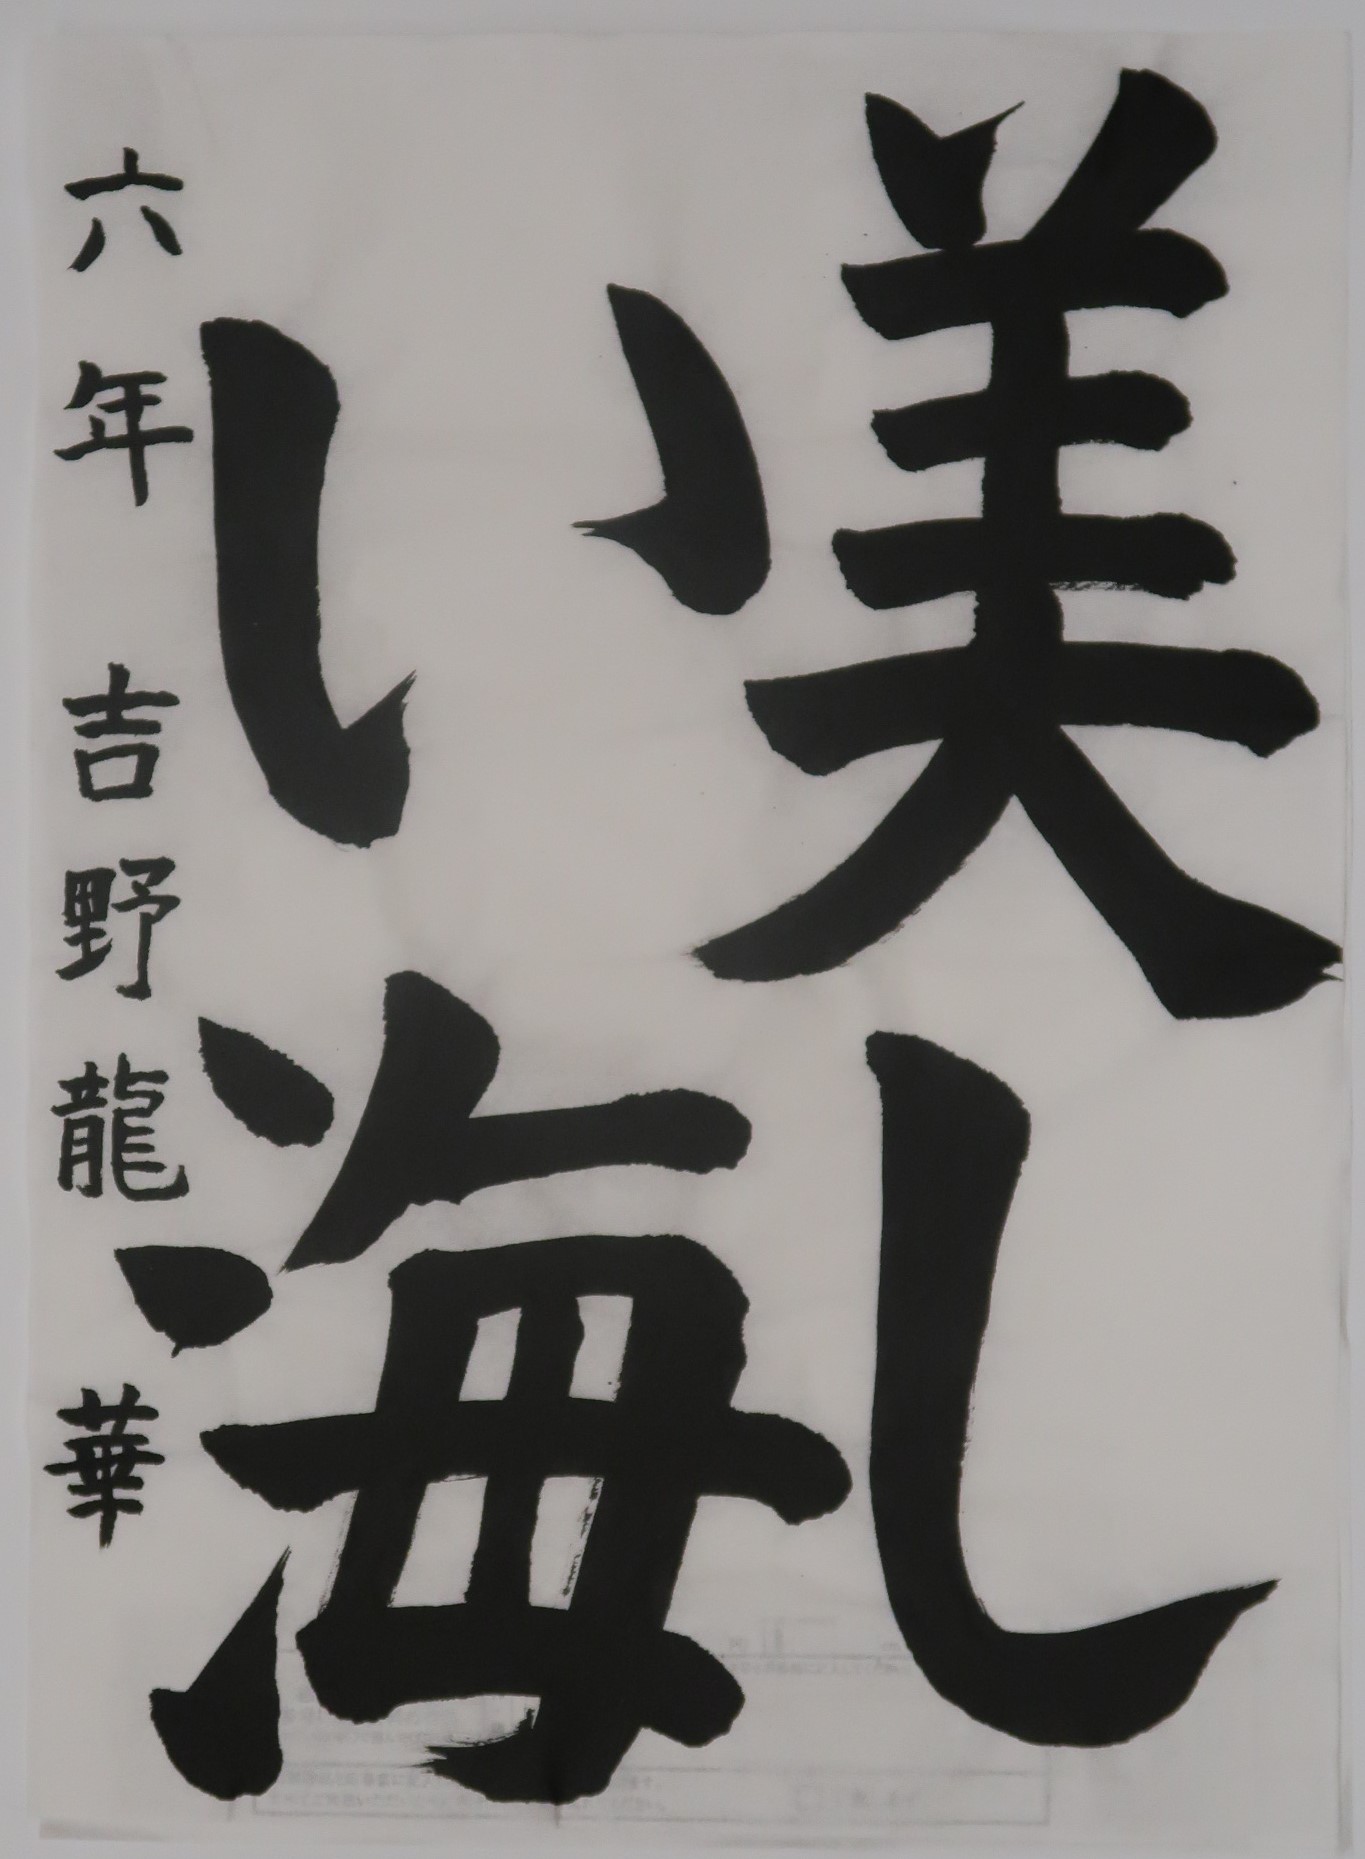 美し
い海
六年 吉野龍華